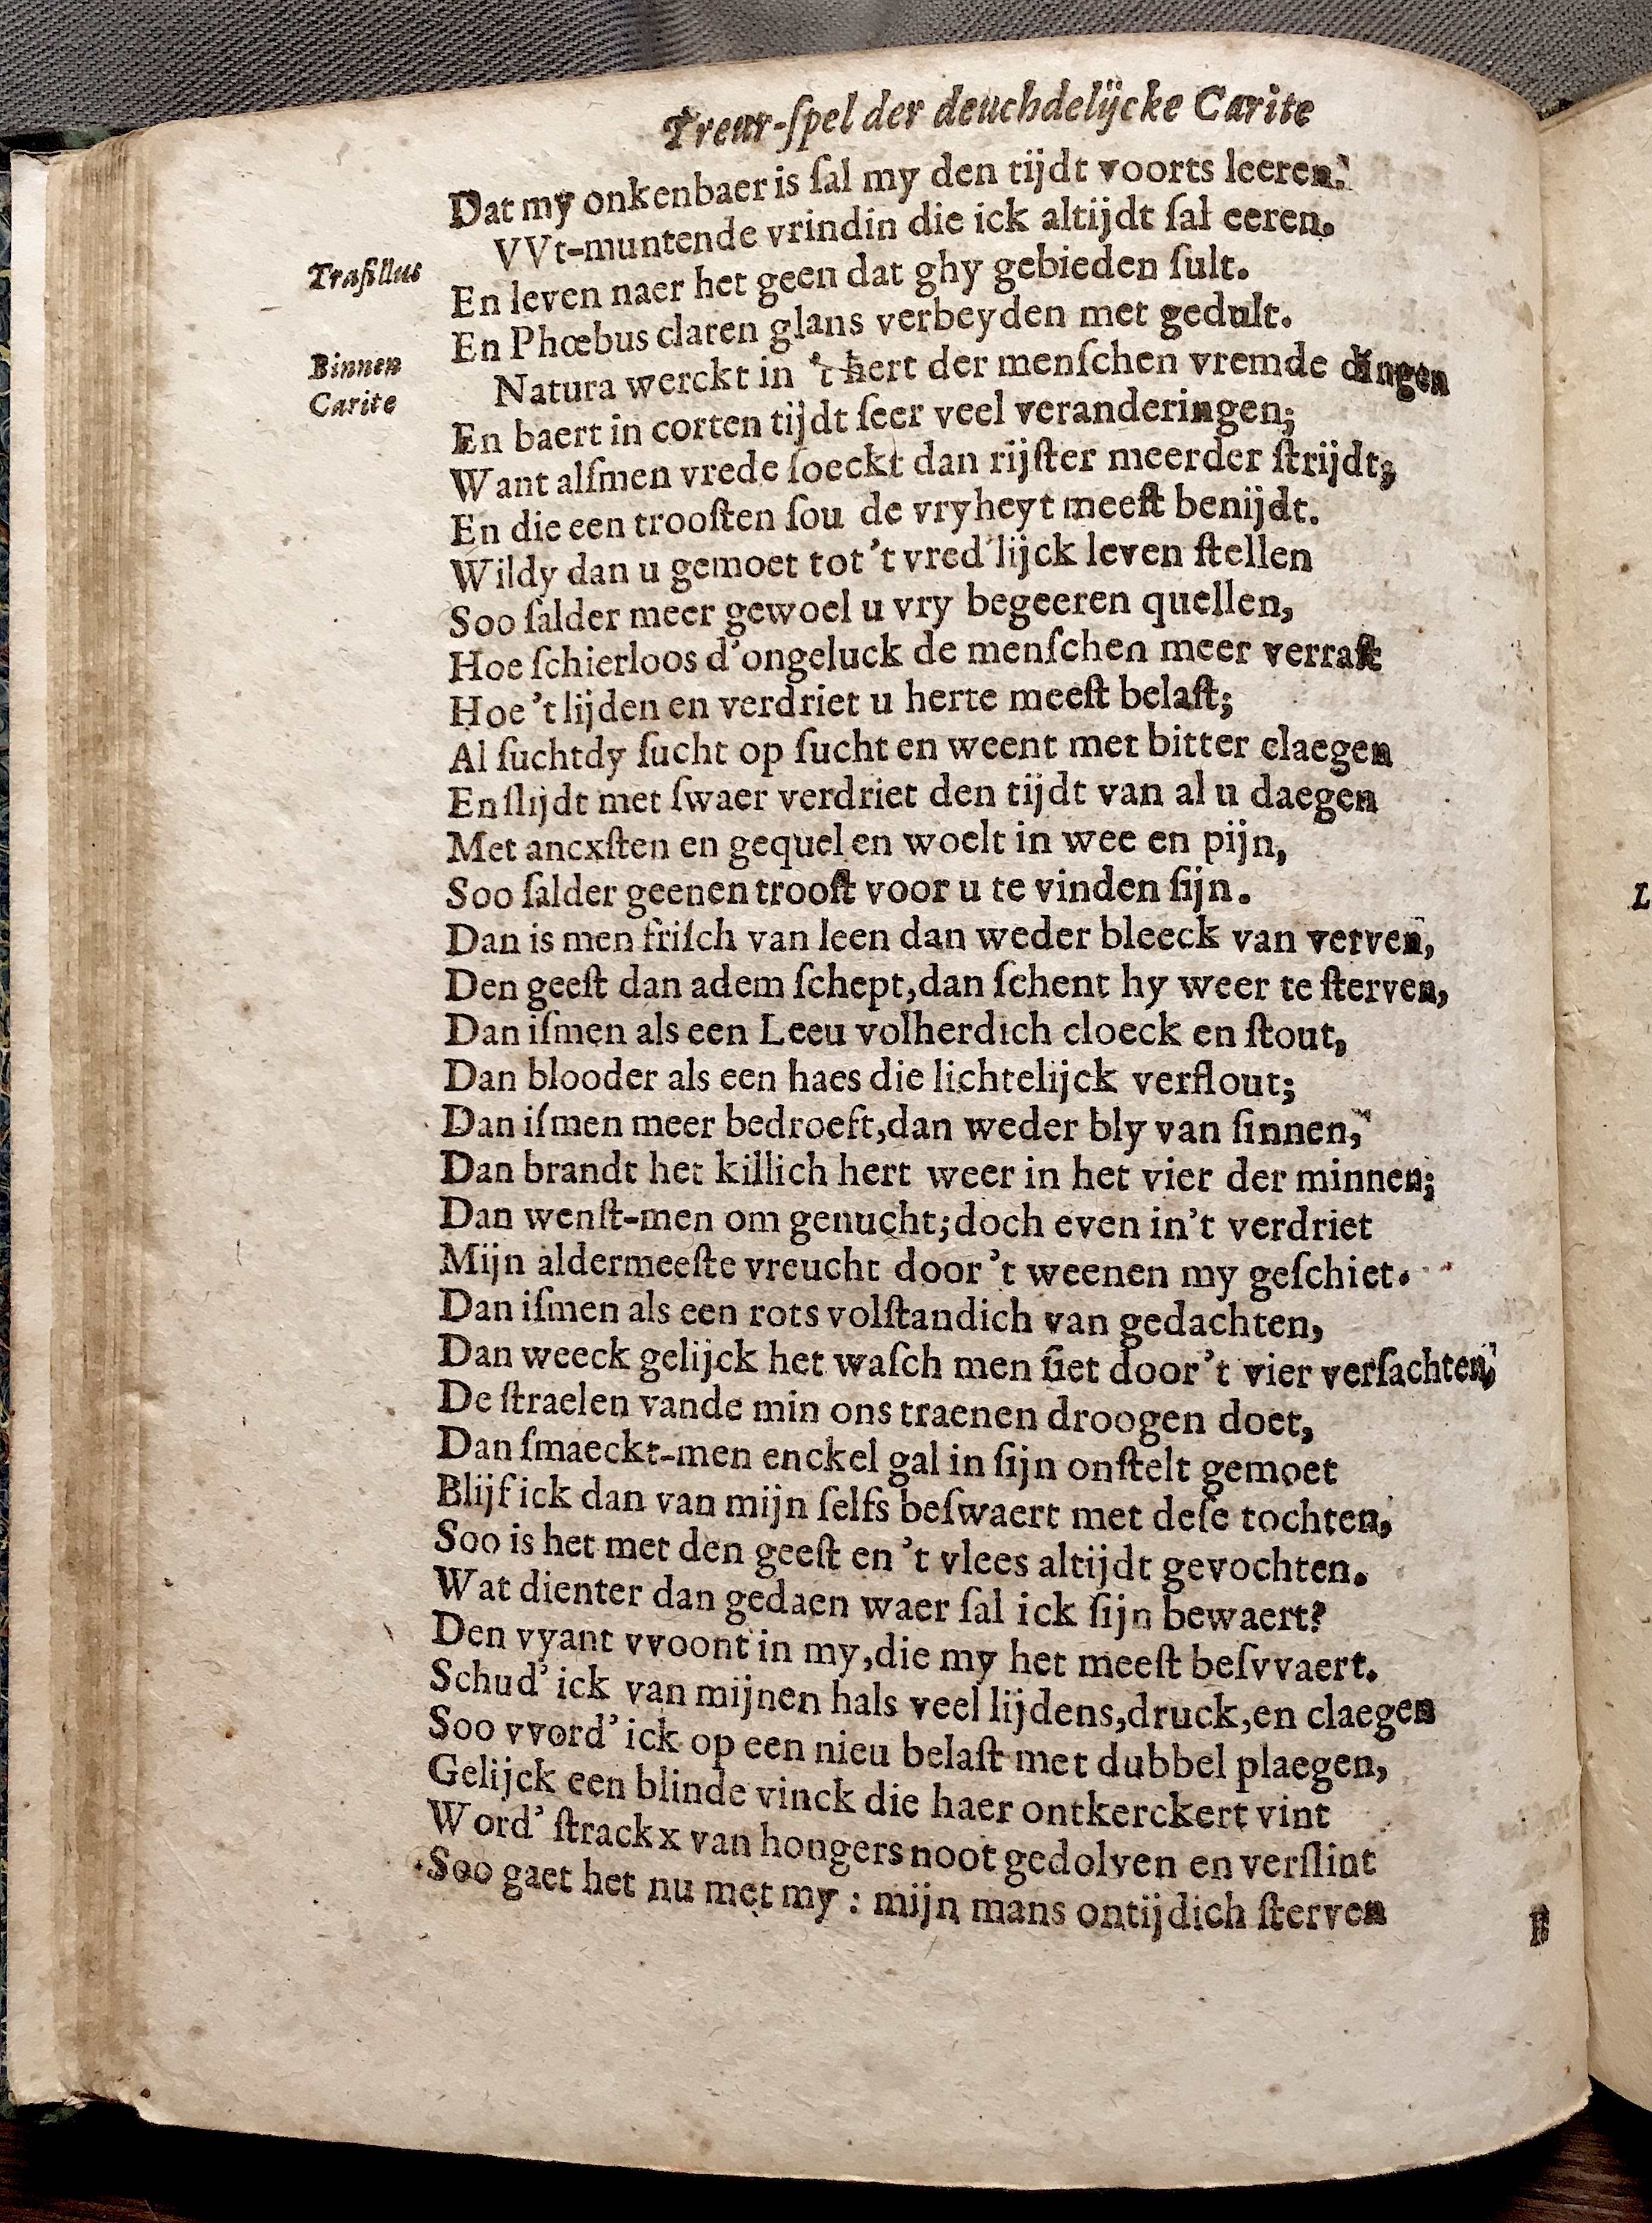 Treur-ſpel der deuchdelijcke Carite
Dat my onkenbaer is ſal my den tijdt voorts leeren.
Traſillus
VVt-muntende vrindin die ick altijdt ſal eeren.
En leven naer het geen dat ghy gebieden ſult.
En Phœbus claren glans verbeyden met gedult.
Binnen
Carite
Natura werckt in 't hert der menſchen vremde dingen
En baert in corten tijdt ſeer veel veranderingen;
Want alſmen vrede ſoeckt dan rijſter meerder ſtrijdt;
En die een trooſten ſou de vryheyt meeſt benijdt.
Wildy dan u gemoet tot 't vred'lijck leven ſtellen
Soo ſalder meer gewoel u vry begeeren quellen,
Hoe ſchierloos d'ongeluck de menſchen meer verraſt
Hoe 't lijden en verdriet u herte meeſt belaſt;
Al ſuchtdy ſucht op ſucht en weent met bitter claegen
En ſlijdt met ſwaer verdriet den tijdt van al u daegen
Met ancxſten en gequel en woelt in wee en pijn,
Soo ſalder geenen trooſt voor u te vinden ſijn.
Dan is men friſch van leen dan weder bleeck van verven,
Den geeſt dan adem ſchept,dan ſchent hy weer te ſterven,
Dan iſmen als een Leeu volherdich cloeck en ſtout,
Dan blooder als een haes die lichtelijck verflout;
Dan iſmen meer bedroeft,dan weder bly van ſinnen,
Dan brandt het killich hert weer in het vier der minnen;
Dan wenſt-men om genucht;doch even in't verdriet
Mijn aldermeeſte vreucht door 't weenen my geſchiet.
Dan iſmen als een rots volſtandich van gedachten,
Dan weeck gelijck het waſch men ſiet door 't vier verſachten,
De ſtraelen vande min ons traenen droogen doet,
Dan ſmaeckt-men enckel gal in ſijn onſtelt gemoet
Blijf ick dan van mijn ſelfs beſwaert met deſe tochten,
Soo is het met den geeſt en 't vlees altijdt gevochten.
Wat dienter dan gedaen waer ſal ick ſijn bewaert?
Den vyant vvoont in my,die my het meeſt beſvvaert.
Schud' ick van mijnen hals veel lijdens,druck,en claegen
Soo vvord' ick op een nieu belaſt met dubbel plaegen,
Gelijck een blinde vinck die haer ontkerckert vint
Word' ſtrackx van hongers noot gedolven en verſlint
Soo gaet het nu met my : mijn mans ontijdich ſterven
L